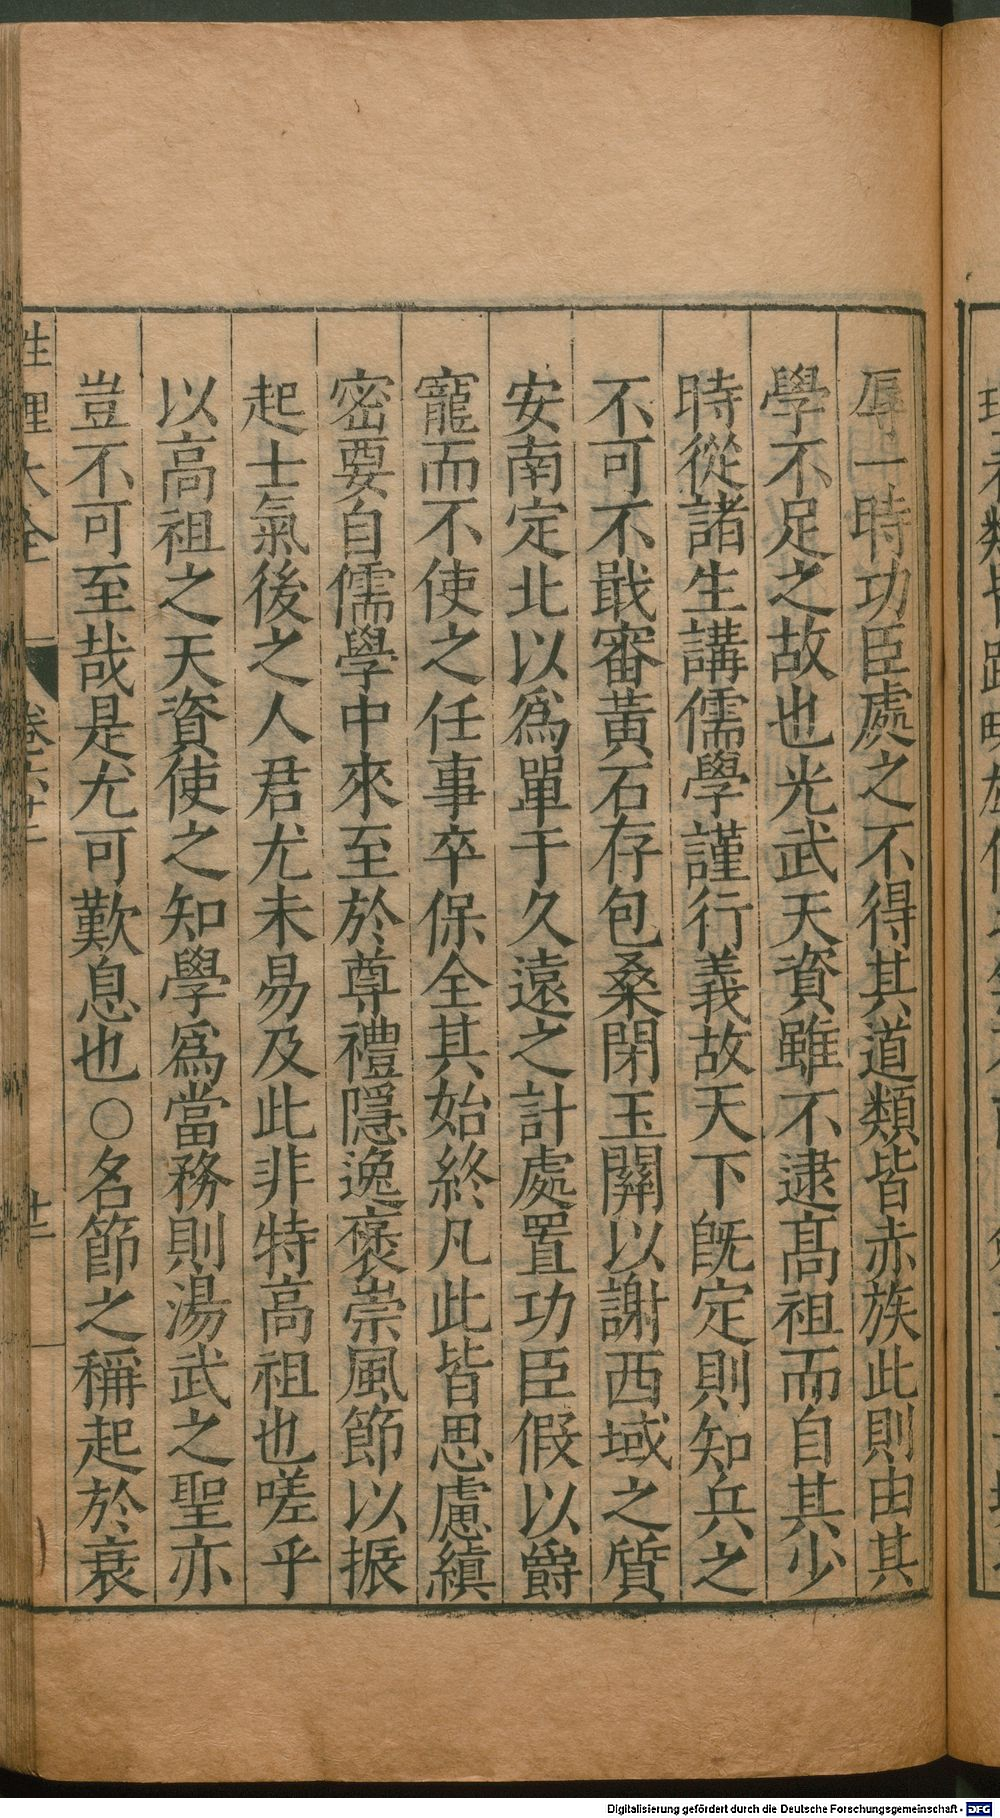 辱一時功臣處之不得其道類皆赤族此則由其
學不足之故也光武天資雖不逮髙祖而自其少
時從諸生講儒學謹行義故天下旣定則知兵之
不可不戢審黃石存包桑閉玉關以謝西域之質
安南定北以爲單于久遠之計處置功臣假以爵
寵而不使之任事卒保全其始終凡此皆思慮縝
密要自儒學中來至於尊禮隱逸褒崇風節以振
起士氣後之人君尤未易及此非特高祖也嗟乎
以高祖之天資使之知學爲當務則湯武之聖亦
豈不可至哉是尤可歎息也○名節之稱起於衰
性理大全
卷六十二
Digitalisierung gefördert durch die Deutsche Forschungsgemeinschaft - DFG